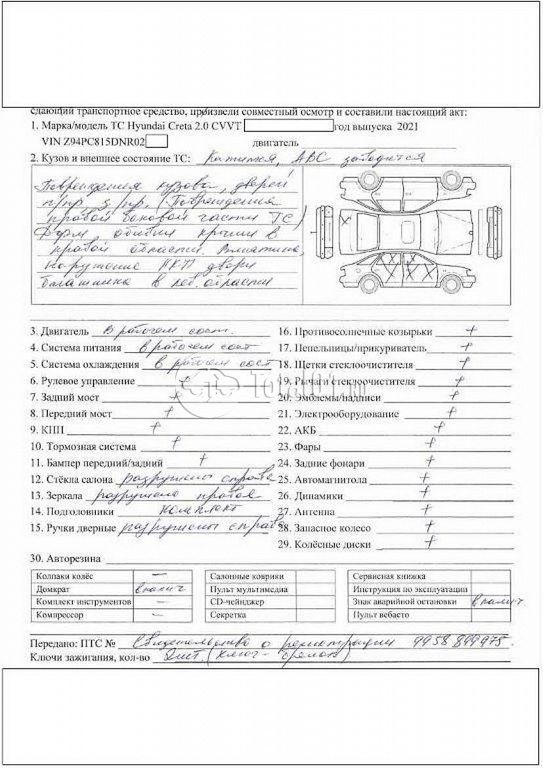 сдающий транспортное средство, произвели совместный осмотр и составили настоящий акт:
1. Марка/модель ТС Hyundai Creta 2.0 CVVT год выпуска 2021
VIN Z94PC815DNR02 двигатель
2. Кузов и внешнее состояние ТС: заводится
Повреждения кузова, дверей
п/пр, з/пр, (Повреждения
правой боковой части ТС)
крыши в
правой области. Вмятина,
Нарушение ЛКП двери
в области
3. Двигатель в рабочем сост.
4. Система питания в рабочем сост
5. Система охлаждения в рабочем сост
6. Рулевое управление +
7. Задний мост +
8. Передний мост +
9. КПП +
10. Тормозная система +
11. Бампер передний/задний +
12. Стёкла салона разрушены справа
13. Зеркала разрушено правое
14. Подголовники комплект
15. Ручки дверные разрушены справа
16. Противосолнечные козырьки +
17. Пепельницы/прикуриватель +
18. Щетки стеклоочистителя +
19. Рычаги стеклоочистителя +
20. Эмблемы/надписи +
21. Электрооборудование +
22. АКБ +
23. Фары +
24. Задние фонари +
25. Автомагнитола +
26. Динамики +
27. Антенна +
28. Запасное колесо +
29. Колёсные диски +
30. Авторезина
Колпаки колёс — Салонные коврики Сервисная книжка
Домкрат в налич Пульт мультимедиа Инструкция по эксплуатации
Комплект инструментов — CD-чейнджер Знак аварийной остановки в налич
Компрессор — Секретка Пульт вебасто
Передано: ПТС № Свидетельство о регистрации 9958 899975
Ключи зажигания, кол-во (ключ-брелок)